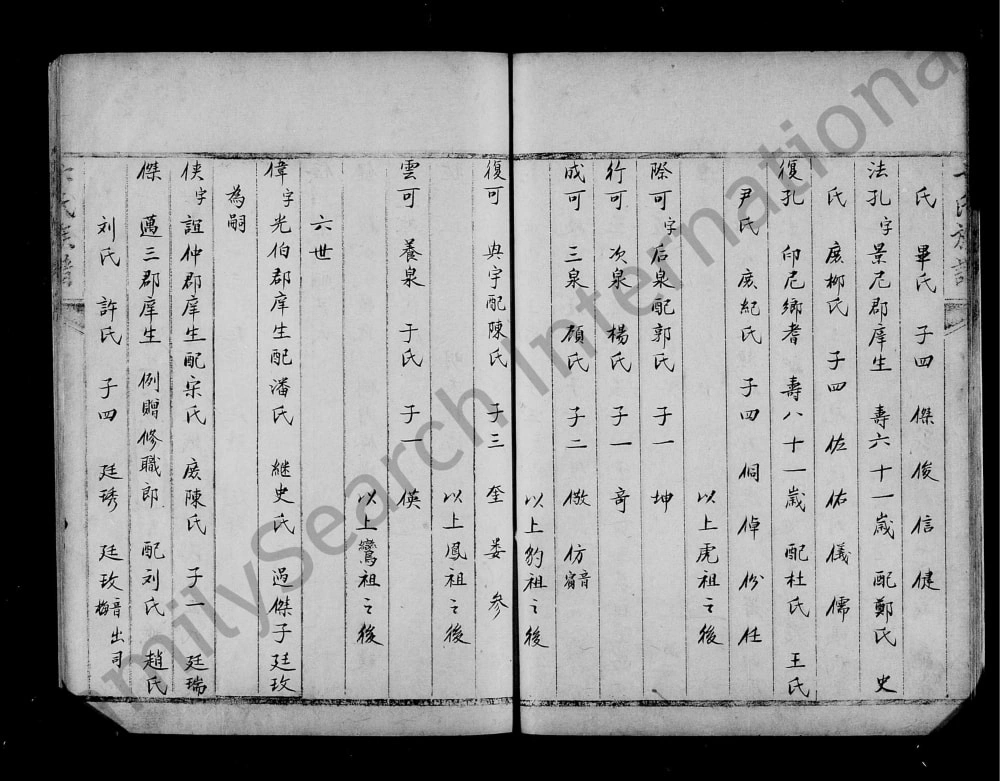 氏 畢氏 子四 傑 俊 信 健
法孔 字景尼郡庠生 壽六十一歲 配鄭氏 史
氏 庶柳氏 子四 佐 佑 儀 儒
復孔 印尼鄉耆 壽八十一歲 配杜氏 王氏
尹氏 庶紀氏 子四 侗 倬 份 任
以上虎祖之後
際可 字后泉配郭氏 子一 坤
行可 次泉 楊氏 子一 奇
成可 三泉 顔氏 子二 儆 仿 音賓
以上豹祖之後
復可 與宇配陳氏 子三 奎 婁 參
以上鳳祖之後
雲可 養泉 于氏 子一 偀
以上鸞祖之後
六世
偉 字光伯郡庠生配潘氏 継史氏 過傑子廷玫
為嗣
俠 字誼仲郡庠生配宋氏 庶陳氏 子一 廷瑞
傑 邁三郡庠生 例贈修職郎 配刘氏 趙氏
刘氏 許氏 子四 廷琇 廷玫 音梅 出司
氏族譜
FamilySearch International